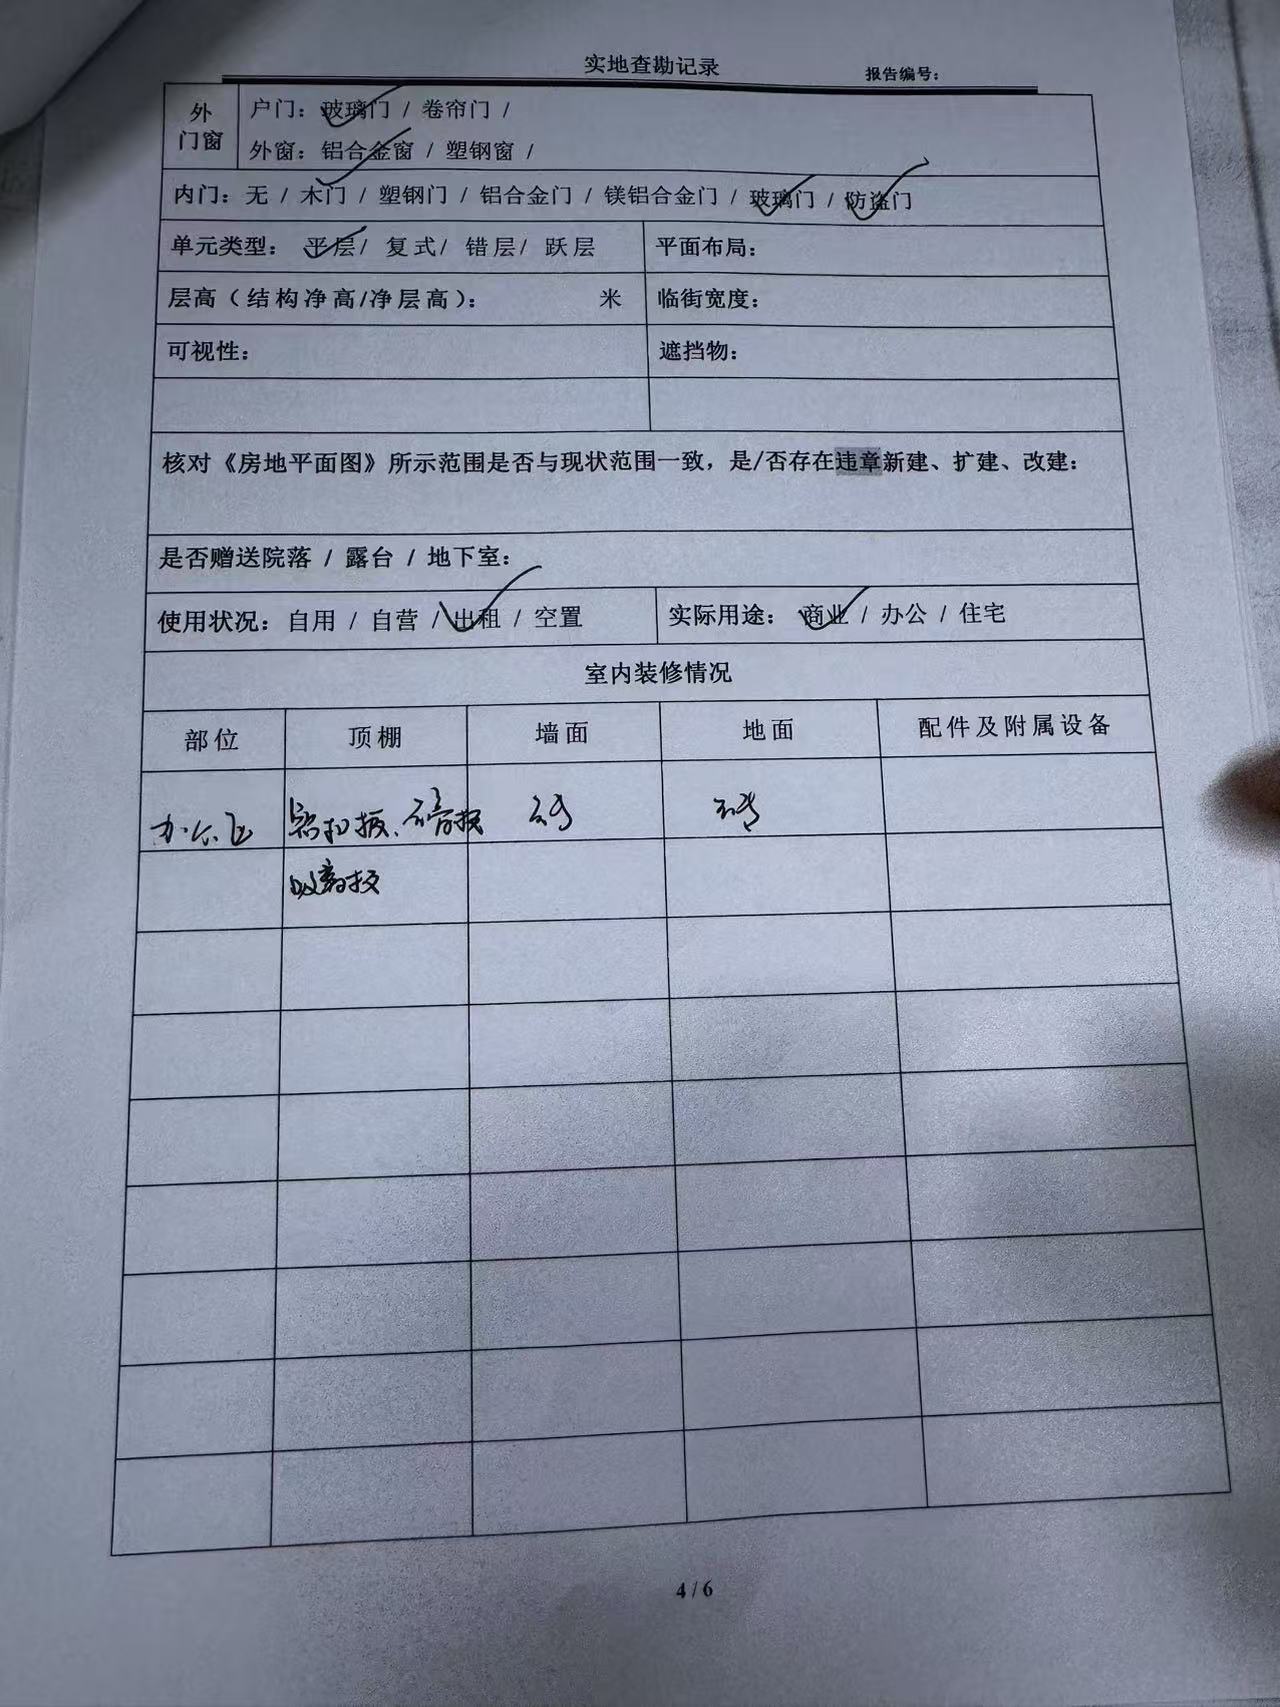 实地查勘记录
报告编号：
外门窗
户门：玻璃门 / 卷帘门 /
外窗：铝合金窗 / 塑钢窗 /
内门：无 / 木门 / 塑钢门 / 铝合金门 / 镁铝合金门 / 玻璃门 / 防盗门
单元类型： 平层/ 复式/ 错层/ 跃层
平面布局：
层高（结构净高/净层高）： 米
临街宽度：
可视性：
遮挡物：
核对《房地平面图》所示范围是否与现状范围一致，是/否存在违章新建、扩建、改建：
是否赠送院落 / 露台 / 地下室：
使用状况：自用 / 自营 / 出租 / 空置
实际用途： 商业 / 办公 / 住宅
室内装修情况
部位 顶棚 墙面 地面 配件及附属设备
办公区 铝扣板、石膏板
4 / 6